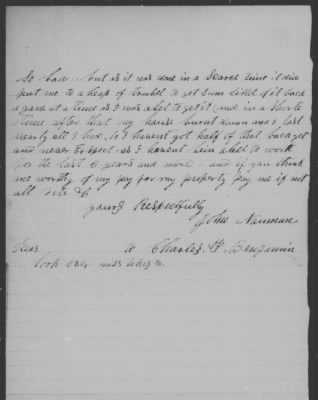 so low but as it was done in a Scarce time it did
put me to a heap of trubel to get sum little of it back
a gane at a time as I was abel to get it and in a Shorte
time after that my house burnt down and I lost
nearly all I had, so I havent got half of that back yet
and never Expect as I havent bin abel to work
for the last 6 years and more and if you think
me worthy of my pay for my property pay me if not
all rite
yours Respectfully
John
to Charles F Benjamin
look over mistakes